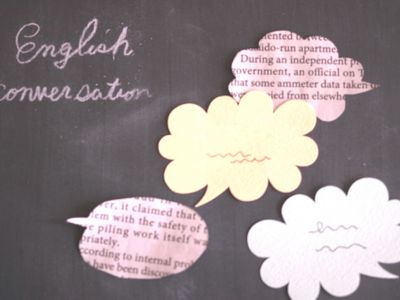 English
conversation
ented between
aido-run apartme
During an independent pr
government, an official on T
that some ammeter data taken
ied from elsewhe
er, it claimed that
em with the safety of t
e piling work itself wa
priately.
ccording to internal pro
have been disco